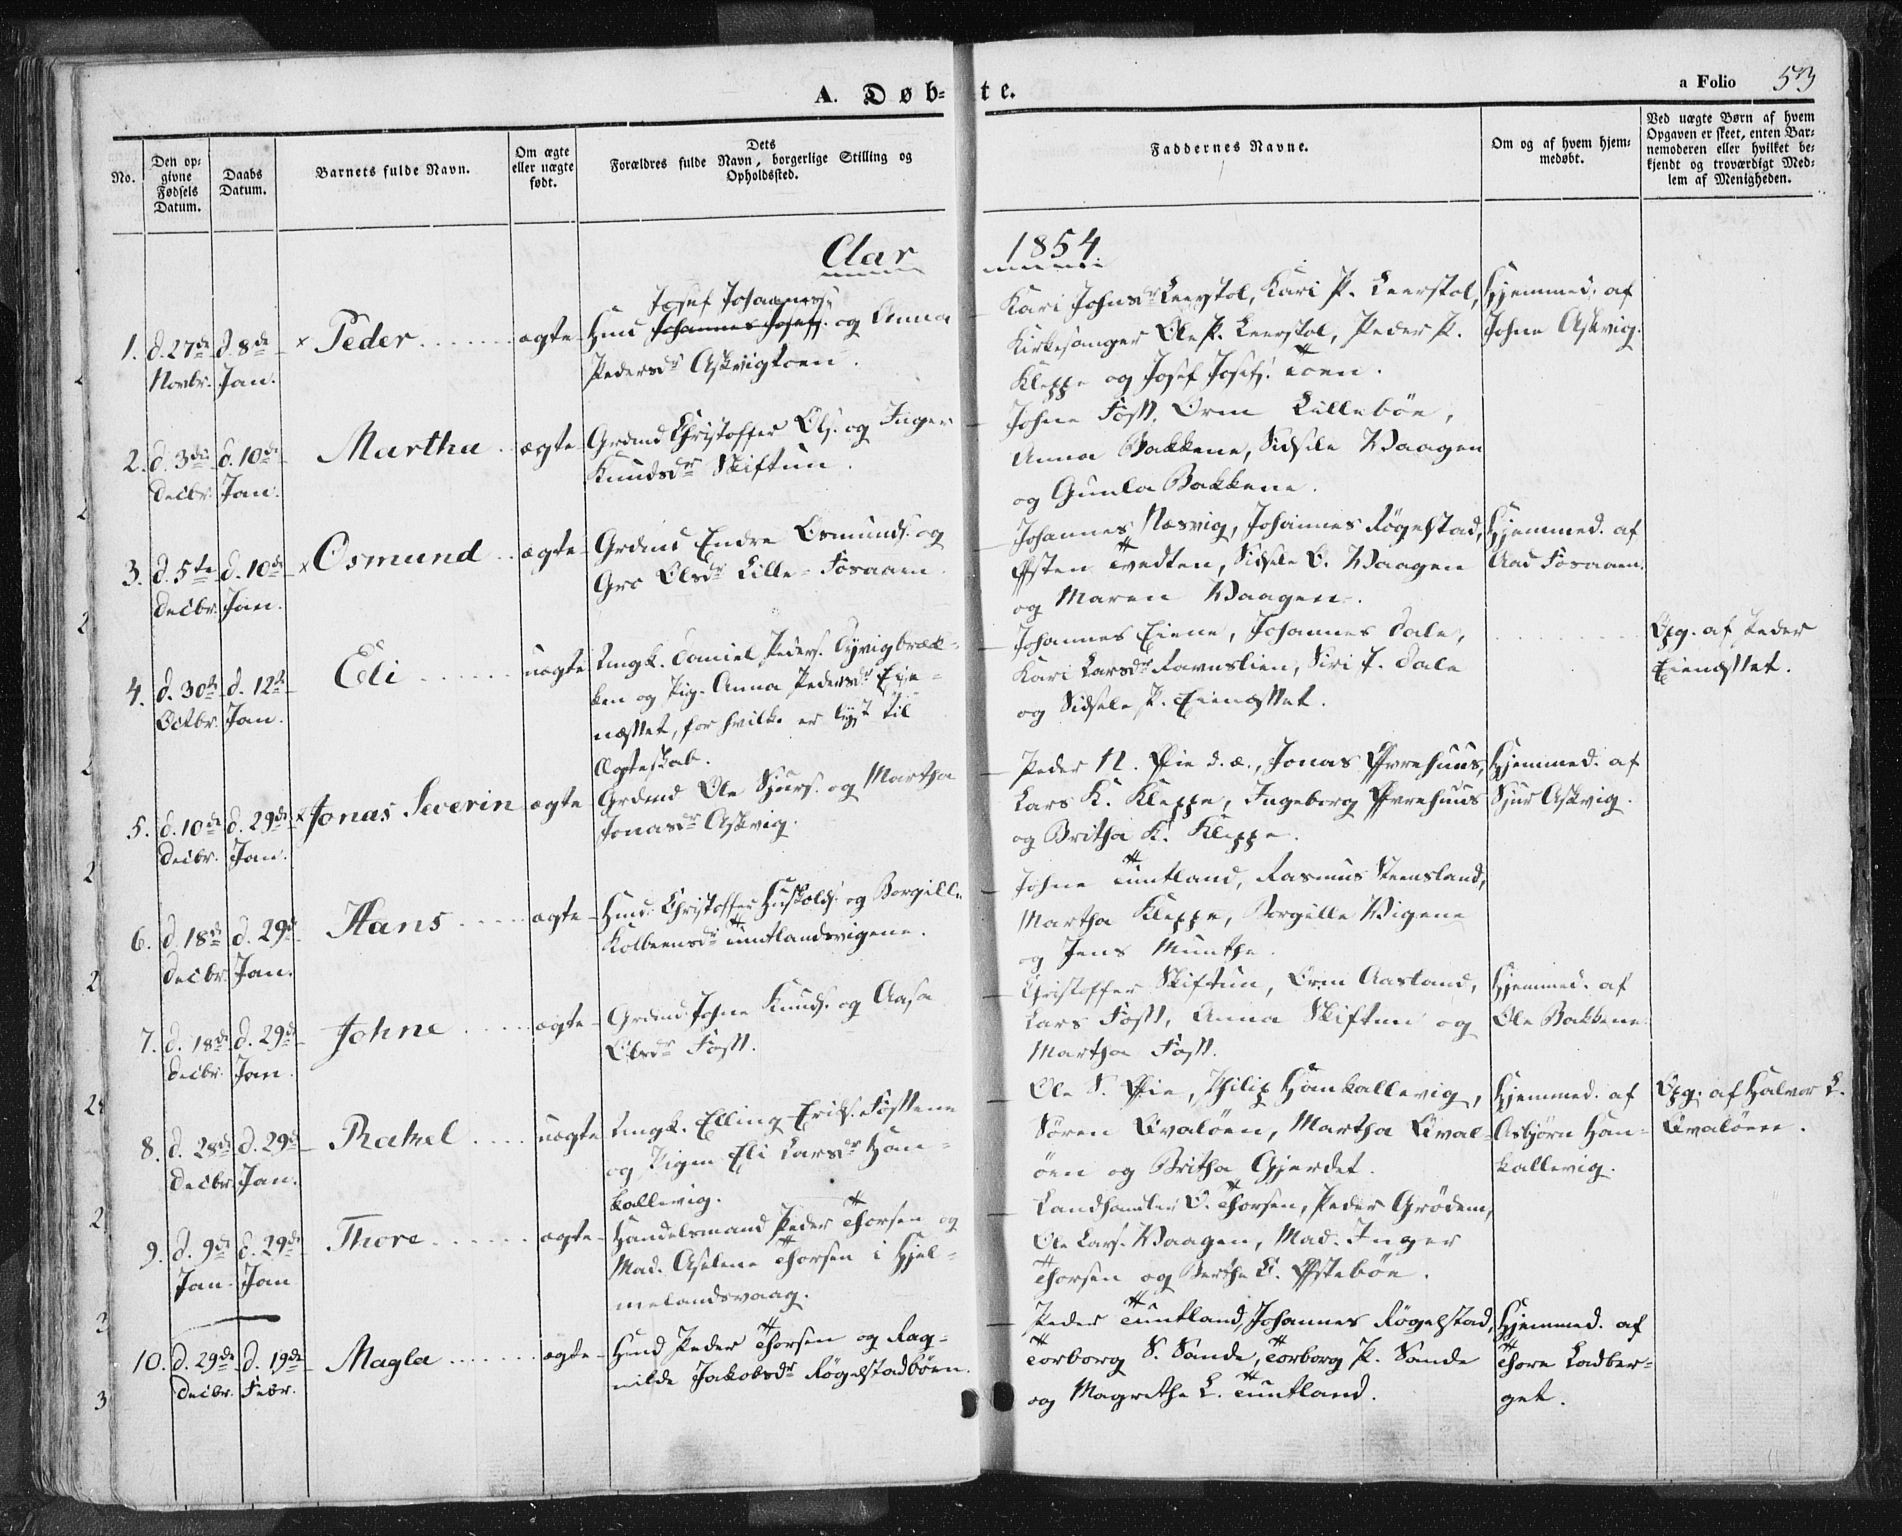 A. Døb-te.
a Folio 53
No.
Den op-
givne
Fødsels
Datum.
Daabs
Datum.
Barnets fulde Navn.
Om ægte
eller uægte
født.
Dets
Forældres fulde Navn, borgerlige Stilling og
Opholdssted.
Faddernes Navne.
Om og af hvem hjem-
medøbt.
Ved uægte Børn af hvem
Opgaven er skeet, enten Bar-
nemoderen eller hvilket be-
kjendt og troværdigt Med-
lem af Menigheden.
Aar 1854
1. d. 27de
Novbr.
d. 8de
Jan.
× Peder
ægte
Josef Johannes.
Hmd Johannes Josefs. og Anna
Pedersdr Askvigtoen.
Kari Johnsdr Leerstol, Kari P. Leerstol,
Kirkesanger Ole P. Leerstol, Peder P.
Kleppe og Josef Josefs. Toen.
Hjemmed. af
Johne Askvig.
2. d. 3die
Decbr.
d. 10de
Jan.
Martha
ægte
Grdmd Christoffer Ols. og Inger
Knudsdr Skiftun.
Johne Fost, Orm Lillebøe,
Anna Bakkene, Sidsele Waagen
og Gunla Bakkene.
3. d. 5te
Decbr.
d. 10de
Jan.
× Osmund
ægte
Grdmd Endre Osmunds. og
Gro Olsdr Lille-Fosaaen.
Johannes Næsvig, Johannes Røgelstad,
Østen Tvedten, Sidsele O. Waagen
og Maren Waagen.
Hjemmed. af
Aad Fosaaen.
4. d. 30te
Octbr.
d. 12te
Jan.
Eli
uægte
Ungk. Daniel Peders. Dyvigbræk-
ken og Pig. Anna Pedersdr Eie-
næstet, for hvilke er lyst til
Ægteskab.
Johannes Eiene, Johannes Dale,
Kari Larsdr Ravnslien, Siri J. Dale
og Sidsele P. Eienæstet.
Opg. af Peder
Eienæstet.
5. d. 10de
Decbr.
d. 29de
Jan.
× Jonas Severin
ægte
Grdmd Ole Sjurs. og Martha
Jonasdr Askvig.
Peder N. Øie d.æ., Jonas Øvrehuus,
Lars K. Kleppe, Ingeborg Øvrehuus
og Britha K. Kleppe.
Hjemmed. af
Sjur Askvig.
6. d. 18de
Decbr.
d. 29de
Jan.
Hans
ægte
Hmd. Christoffer Huskolds. og Borgille
Kolbeensdr Tuntlandsvigene.
Johne Tuntland, Rasmus Steensland,
Martha Kleppe, Borgille Vigene
og Jens Munthe.
7. d. 18de
Decbr.
d. 29de
Jan.
Johne
ægte
Grdmd Johne Knuds. og Aasa
Olsdr Fost.
Christoffer Skiftun, Orm Aasland,
Lars Fost, Anna Skiftun og
Martha Fost.
Hjemmed. af
Ole Bakkene.
8. d. 28de
Decbr.
d. 29de
Jan.
Rakel
uægte
Ungk. Elling Eriks. Fostene
og Pigen Eli Larsdr Han-
kallevig.
Ole S. Øie, Philip Hankallevig,
Søren Qvaløen, Martha Qval-
øen og Britha Gjerdet.
Hjemmed. af
Asbjørn Han-
kallevig.
Opg. af Halvor L.
Qvaløen.
9. d. 9de
Jan.
d. 29de
Jan
Thore
ægte
Handelsmand Peder Thorsen og
Mad. Aselene Thorsen i Hjel-
melandsvaag.
Landhandler O. Thorsen, Peder Grødem,
Ole Lars. Waagen, Mad. Inger
Thorsen og Berthe E. Østebøe.
10. d. 29de
Decbr.
d. 19de
Febr.
Magla
ægte
Hmd Peder Thorsen og Rag-
nilde Jakobsdr Røgelstadbøen.
Peder Tuntland, Johannes Røgelstad,
Torborg S. Sande, Torborg P. Sande
og Magrethe L. Tuntland.
Hjemmed. af
Thore Ladber-
get.